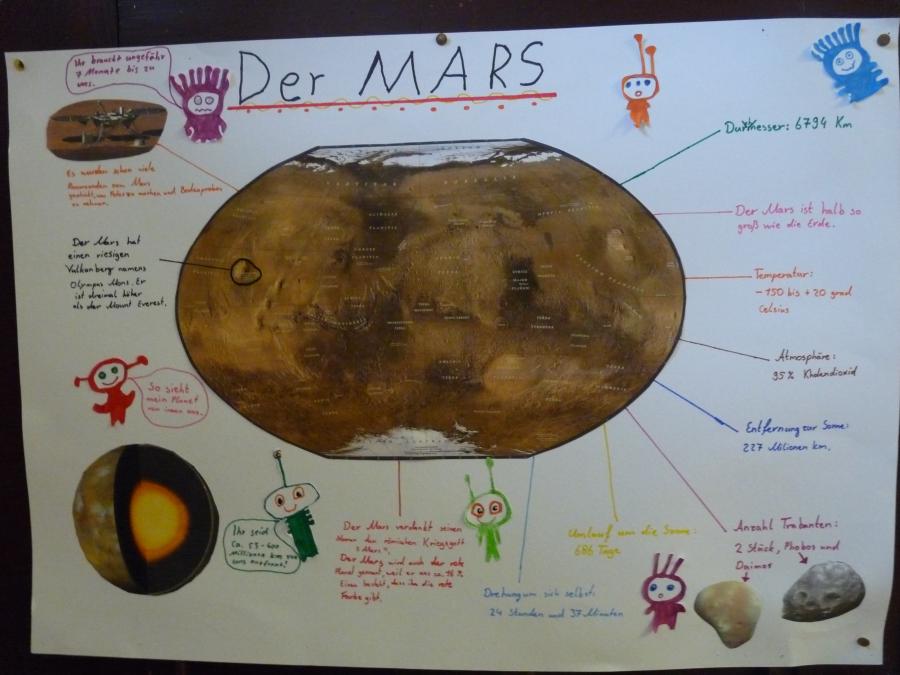 Der MARS
Ihr braucht ungefähr
7 Monate bis zu
uns.
Es wurden schon viele
Marssonden zum Mars
geschickt, um Fotos zu machen und Bodenproben
zu nehmen.
Der Mars hat
einen riesigen
Vulkanberg namens
Olympus Mons. Er
ist dreimal höher
als der Mount Everest.
So sieht
mein Planet
von innen aus.
Ihr seid
ca. 55-400
Millionen km von
uns entfernt!
Der Mars verdankt seinen
Namen den römischen Kriegsgott
"Mars".
Der Mars wird auch der rote
Planet genannt, weil er aus ca. 16 %
Eisen besteht, dass ihm die rote
Farbe gibt.
Drehung um sich selbst:
24 Stunden und 37 Minuten
Umlauf um die Sonne:
686 Tage
Durchmesser: 6794 Km
Der Mars ist halb so
groß wie die Erde.
Temperatur:
-150 bis +20 grad
Celsius
Atmosphäre:
95% Kholendioxid
Entfernung zur Sonne:
227 Milionen km.
Anzahl Trabanten:
2 Stück, Phobos und
Daimos